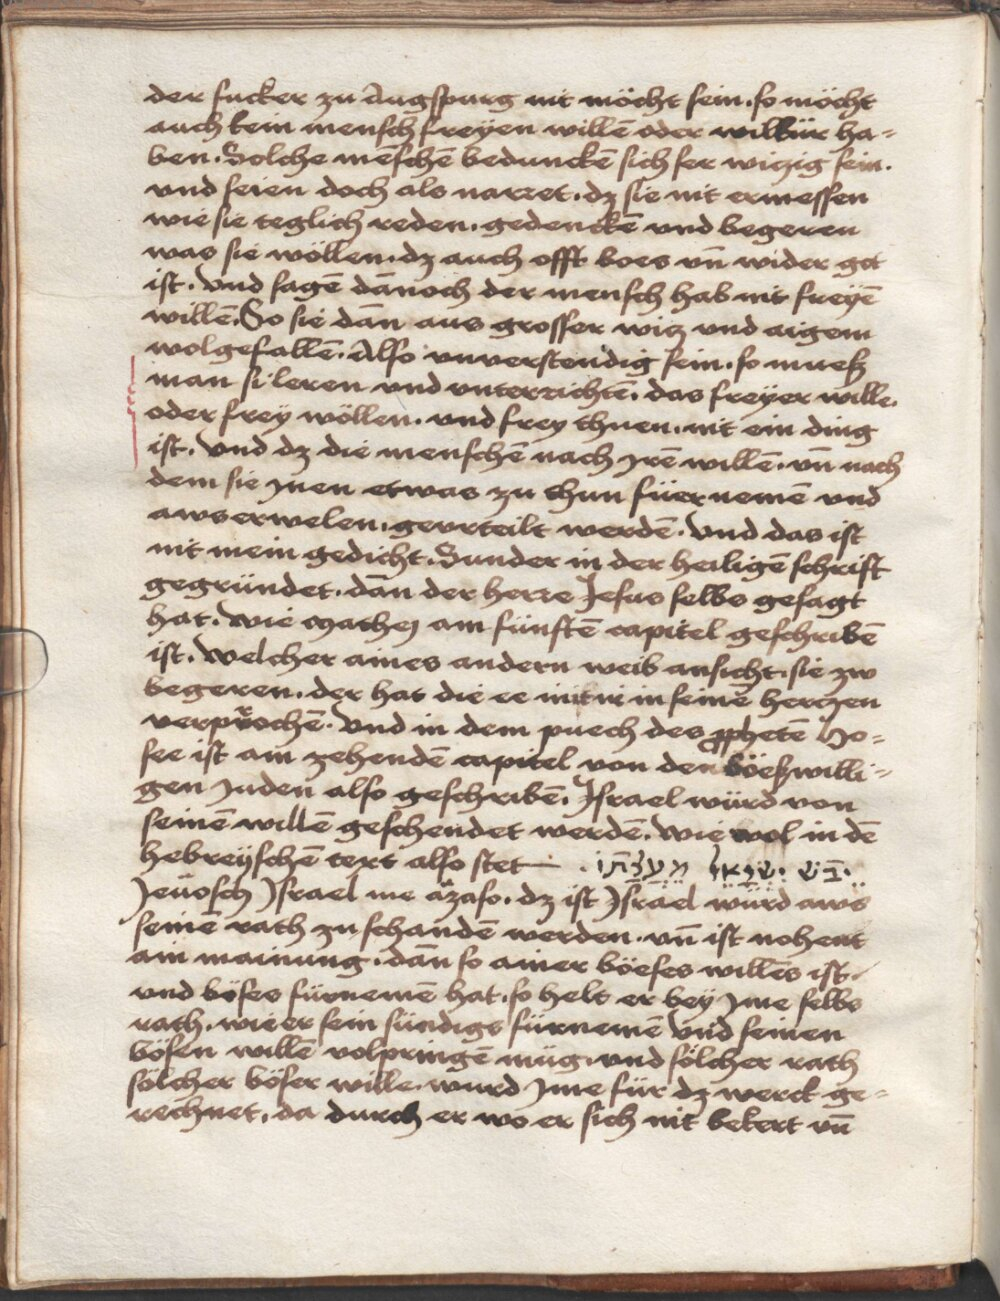 der fucker zu Augspurg nit möcht sein. so möcht
auch kein mensch freyen willē oder willkür ha-
ben. Solche mēschē beduncke͂ sich ser wiczig sein.
vnd seien doch als narret. dz sie nit ermessen
wie sie teglich reden. gedenckē vnd begeren
was sie wöllen. dz auch offt boes vn̄ wider got
ist. vnd sagē dānoch der mensch hab nit freyē
willē. So sie dān aus grosser wicz vnd aigem
wolgefallē. Also vnverstendig sein. so mueß
man si leren vnd vnterrichtē. das freyer wille.
oder frey wöllen. vnd frey thuen. nit ein ding
ist. vnd dz die menschē nach jrē willē. vn̄ nach
dem sie jnen etwas zu thun füer nemē vnd
awserwelen. gevrteilt werdē. vnd das ist
nit mein gedicht. Sunder in der heiligē schrift
gegründet. dān der herre Jesus selbs gesagt
hat. wie Mathej am fünftē capitel geschribē
ist. welcher aines andern weib ansicht. sie zw
begeren. der hat die ee mit ir in seinē herczen
verprochē. vnd in dem puech des pphetē Ho-
see ist am zehendē capitel von den böeßwilli-
gen Juden also geschribē. Jsrael würd von
seinē willē geschendet werdē. wie wol in dē
hebreyschē text also stet יבש ישראל מעצתו
Jeuosch Jsrael me äzaso. dz ist Jsrael würd aws
seinē rath zu schandē werden. vn̄ ist nohent
ain mainung. dān so ainer böeses willēs ist.
vnd böses fürnemē hat. so helt er bey jme selbs
rath. wie er sein sündigs fürnemē vnd seinen
bösen willē volpringē müg. vnd sölcher rath
sölcher böser wille. wurd jme für dz werck ge-
rechnet. da durch er wo er sich nit bekert vn̄